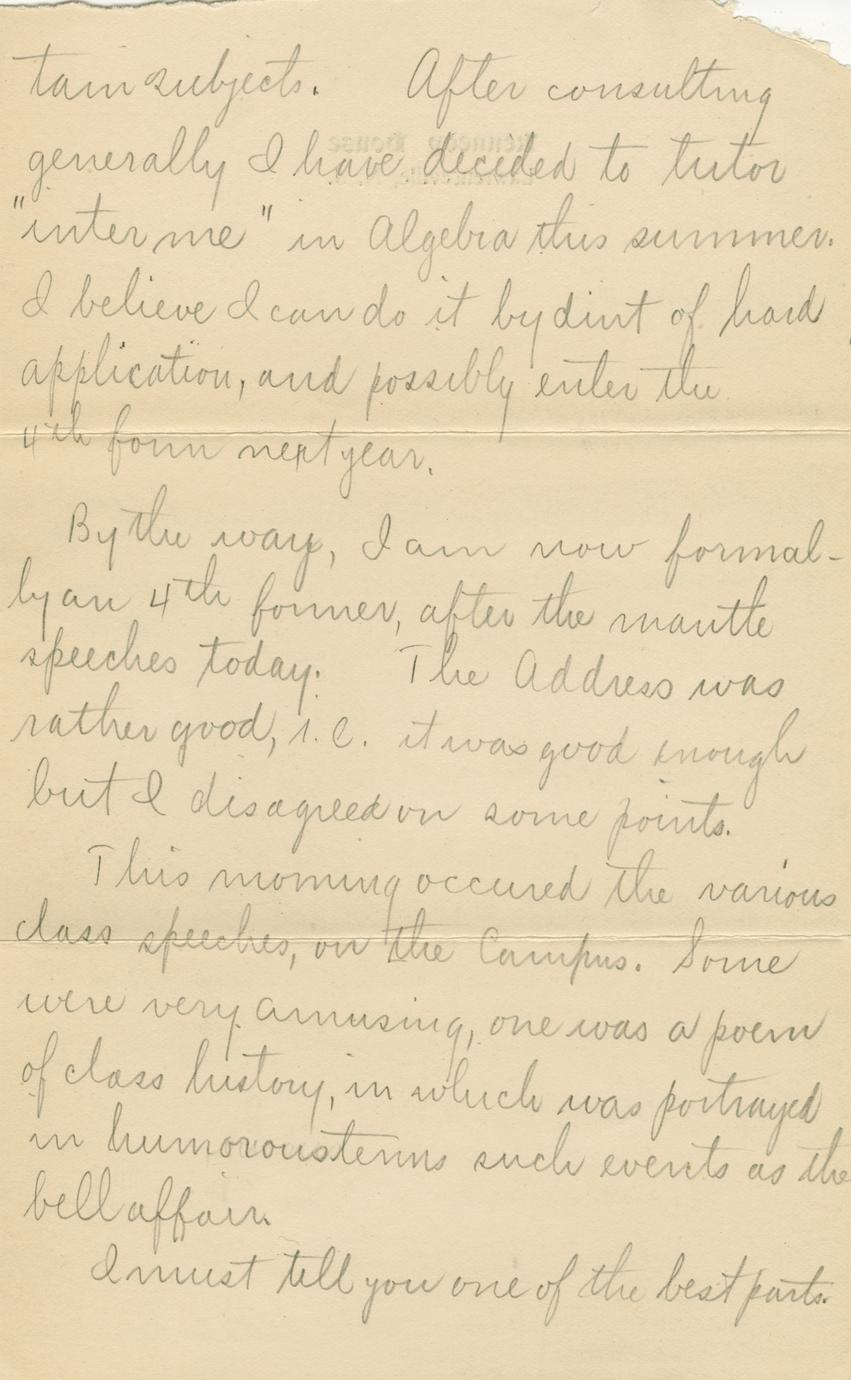 tain subjects. After consulting
generally I have decided to tutor
"inter me" in Algebra this summer.
I believe I can do it by dint of hard
application, and possibly enter the
4th form next year.
By the way, I am now formal-
ly an 4th former, after the mantle
speeches today. The Address was
rather good, i.e. it was good enough
but I disagreed on some points.
This morning occured the various
class speeches, on the Campus. Some
were very amusing, one was a poem
of class history, in which was portrayed
in humorous terms such events as the
bell affair.
I must tell you one of the best parts.